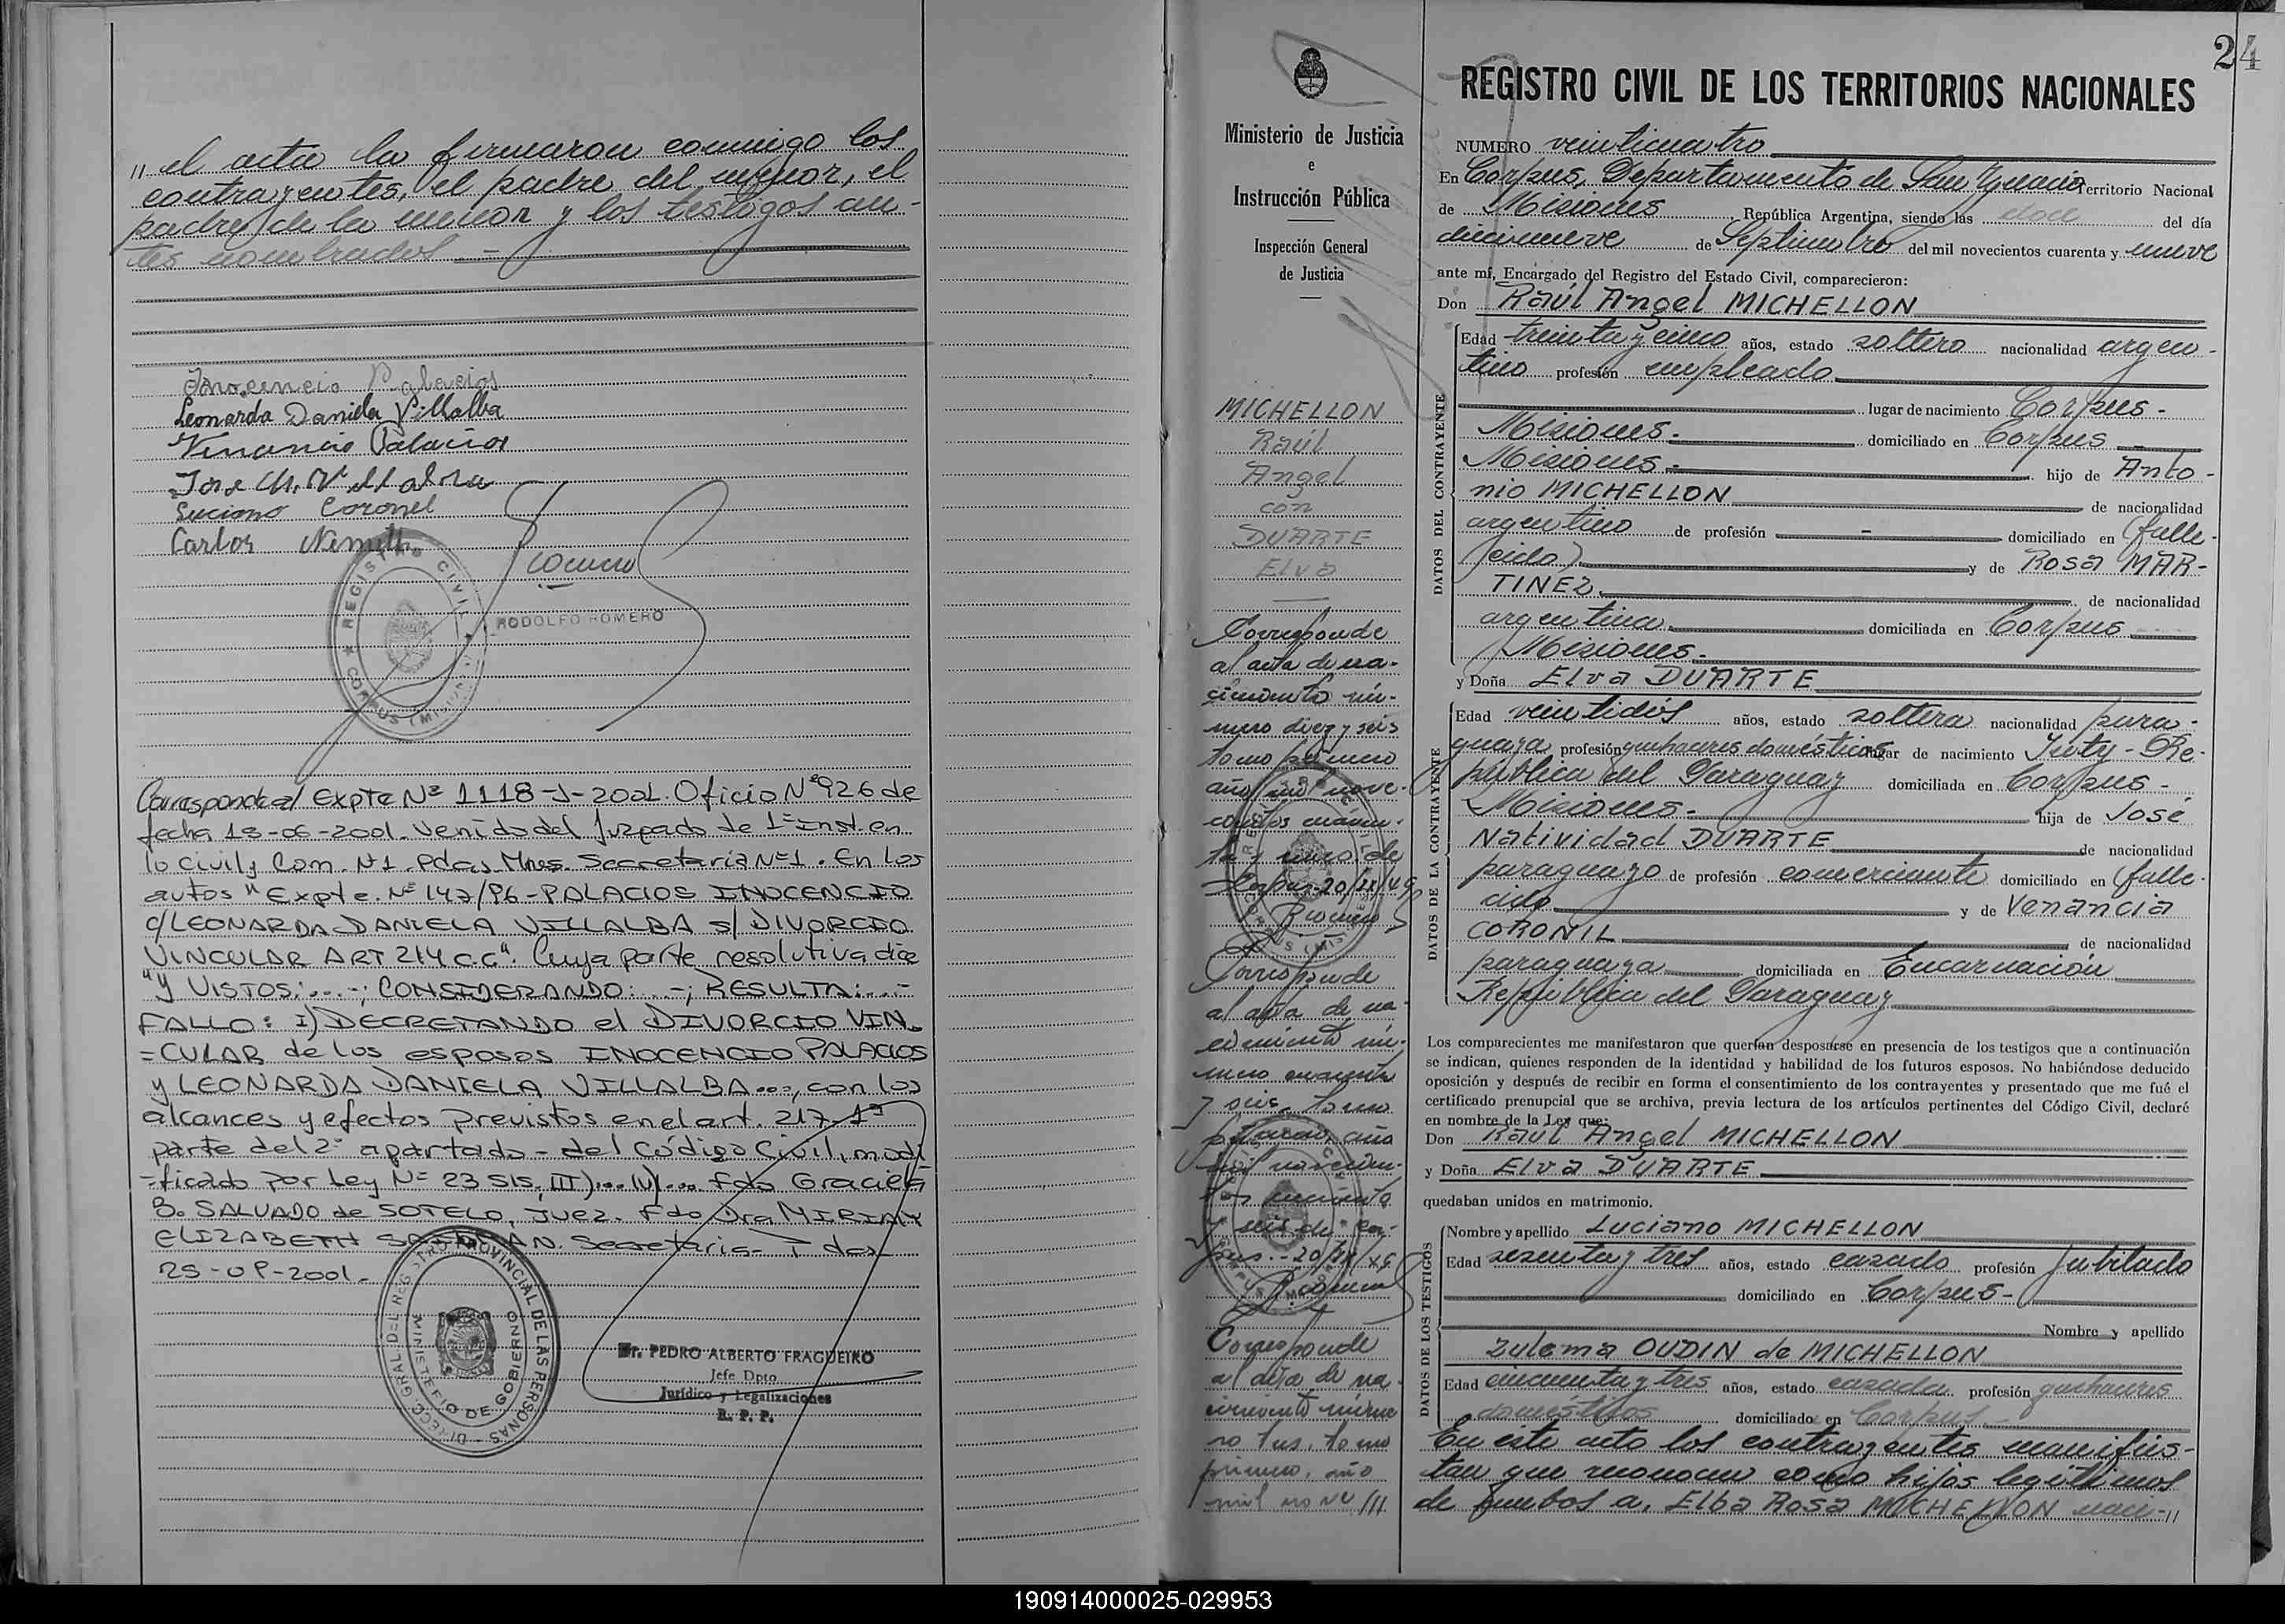 " el acta la firmaron conmigo los
contrayentes, el padre del menor, el
padre de la menor y los testigos an-
tes nombrados. -
Inocencio Palacios
Leonarda Daniela Villalba
Venancio Palacios
Jose M. Villalba
Luciano Coronel
Carlos
REGISTRO CIVIL
CORPUS (MISIONES)
RODOLFO ROMERO
Corresponde al Expte Nº 1118-J-2001. Oficio Nº 926 de
fecha 18-06-2001. Venido del Juzgado de 1º Inst. en
lo Civil y Com. Nº1. Pdas. Mnes. Secretaría Nº1. En los
autos "Expte. Nº 147/96 - PALACIOS INOCENCIO
c/LEONARDA DANIELA VILLALBA s/ DIVORCIO
VINCULAR ART 214 C.C". Cuya parte resolutiva dice
"Y VISTOS:...-; CONSIDERANDO:...-; RESULTA:...-
FALLO: I) DECRETANDO el DIVORCIO VIN-
=CULAR de los esposos INOCENCIO PALACIOS
y LEONARDA DANIELA VILLALBA..., con los
alcances y efectos previstos en el art. 217 1ª
parte del 2º apartado - del Código Civil, modi
=ficado por Ley Nº 23515, III)... IV)... Fdo Graciela
B. SALVADO de SOTELO, Juez. Fdo Dra MIRIAM
ELIZABETH Secretaria. Pdas
25-09-2001.
DIRECC. GRAL DEL REGISTRO PROVINCIAL DE LAS PERSONAS
MINISTERIO DE GOBIERNO
Dr. PEDRO ALBERTO FRAGUEIRO
Jefe Dpto.
Jurídico y Legalizaciones
R. P. P.
Ministerio de Justicia
e
Instrucción Pública
Inspección General
de Justicia
MICHELLON
Raúl
Angel
con
DUARTE
Elva
Corresponde
al acta de na-
cimiento nú-
mero diez y seis
tomo primero
año mil nove-
cientos cuaren-
ta y cinco de
Corpus-20/IX/49
Romero
Corresponde
al acta de na-
cimiento nú-
mero cuarenta
y seis, tomo
primero, año
mil novecien-
tos cuarenta
y seis de Cor-
pus.-20/IX/49
Romero
Corresponde
al acta de na-
cimiento núme
ro tres, tomo
primero, año
mil nove ///
24
REGISTRO CIVIL DE LOS TERRITORIOS NACIONALES
NUMERO veinticuatro
En Corpus, Departamento de San Ignacio Territorio Nacional
de Misiones República Argentina, siendo las doce del día
diecinueve de Septiembre del mil novecientos cuarenta y nueve
ante mí, Encargado del Registro del Estado Civil, comparecieron:
Don Raúl Angel MICHELLON
DATOS DEL CONTRAYENTE
Edad treinta y cinco años, estado soltero nacionalidad argen-
tino profesión empleado
lugar de nacimiento Corpus -
Misiones. domiciliado en Corpus
Misiones. hijo de Anto-
nio MICHELLON de nacionalidad
argentino de profesión - domiciliado en (falle-
cido) y de Rosa MAR-
TINEZ. de nacionalidad
argentina. domiciliada en Corpus
Misiones.
y Doña Elva DUARTE
DATOS DE LA CONTRAYENTE
Edad veintidós años, estado soltera nacionalidad para-
guaya profesión quehaceres domésticos lugar de nacimiento Yuty - Re-
pública del Paraguay domiciliada en Corpus -
Misiones. hija de José
Natividad DUARTE de nacionalidad
paraguayo de profesión comerciante domiciliado en (falle-
cido y de Venancia
CORONIL de nacionalidad
paraguaya domiciliada en Encarnación
República del Paraguay
Los comparecientes me manifestaron que querían desposarse en presencia de los testigos que a continuación
se indican, quienes responden de la identidad y habilidad de los futuros esposos. No habiéndose deducido
oposición y después de recibir en forma el consentimiento de los contrayentes y presentado que me fué el
certificado prenupcial que se archiva, previa lectura de los artículos pertinentes del Código Civil, declaré
en nombre de la Ley que:
Don Raúl Angel MICHELLON
y Doña Elva DUARTE
quedaban unidos en matrimonio.
DATOS DE LOS TESTIGOS
Nombre y apellido Luciano MICHELLON
Edad sesenta y tres años, estado casado profesión Jubilado
domiciliado en Corpus -
Nombre y apellido
Zulema OUDIN de MICHELLON
Edad cincuenta y tres años, estado casada profesión quehaceres
domésticos domiciliado en Corpus -
En este acto los contrayentes manifies-
tan que reconocen como hijos legítimos
de ambos a, Elba Rosa MICHELLON naci-//
190914000025-029953